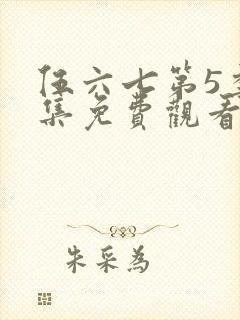 伍六七第5季
集免費觀看
朱采為